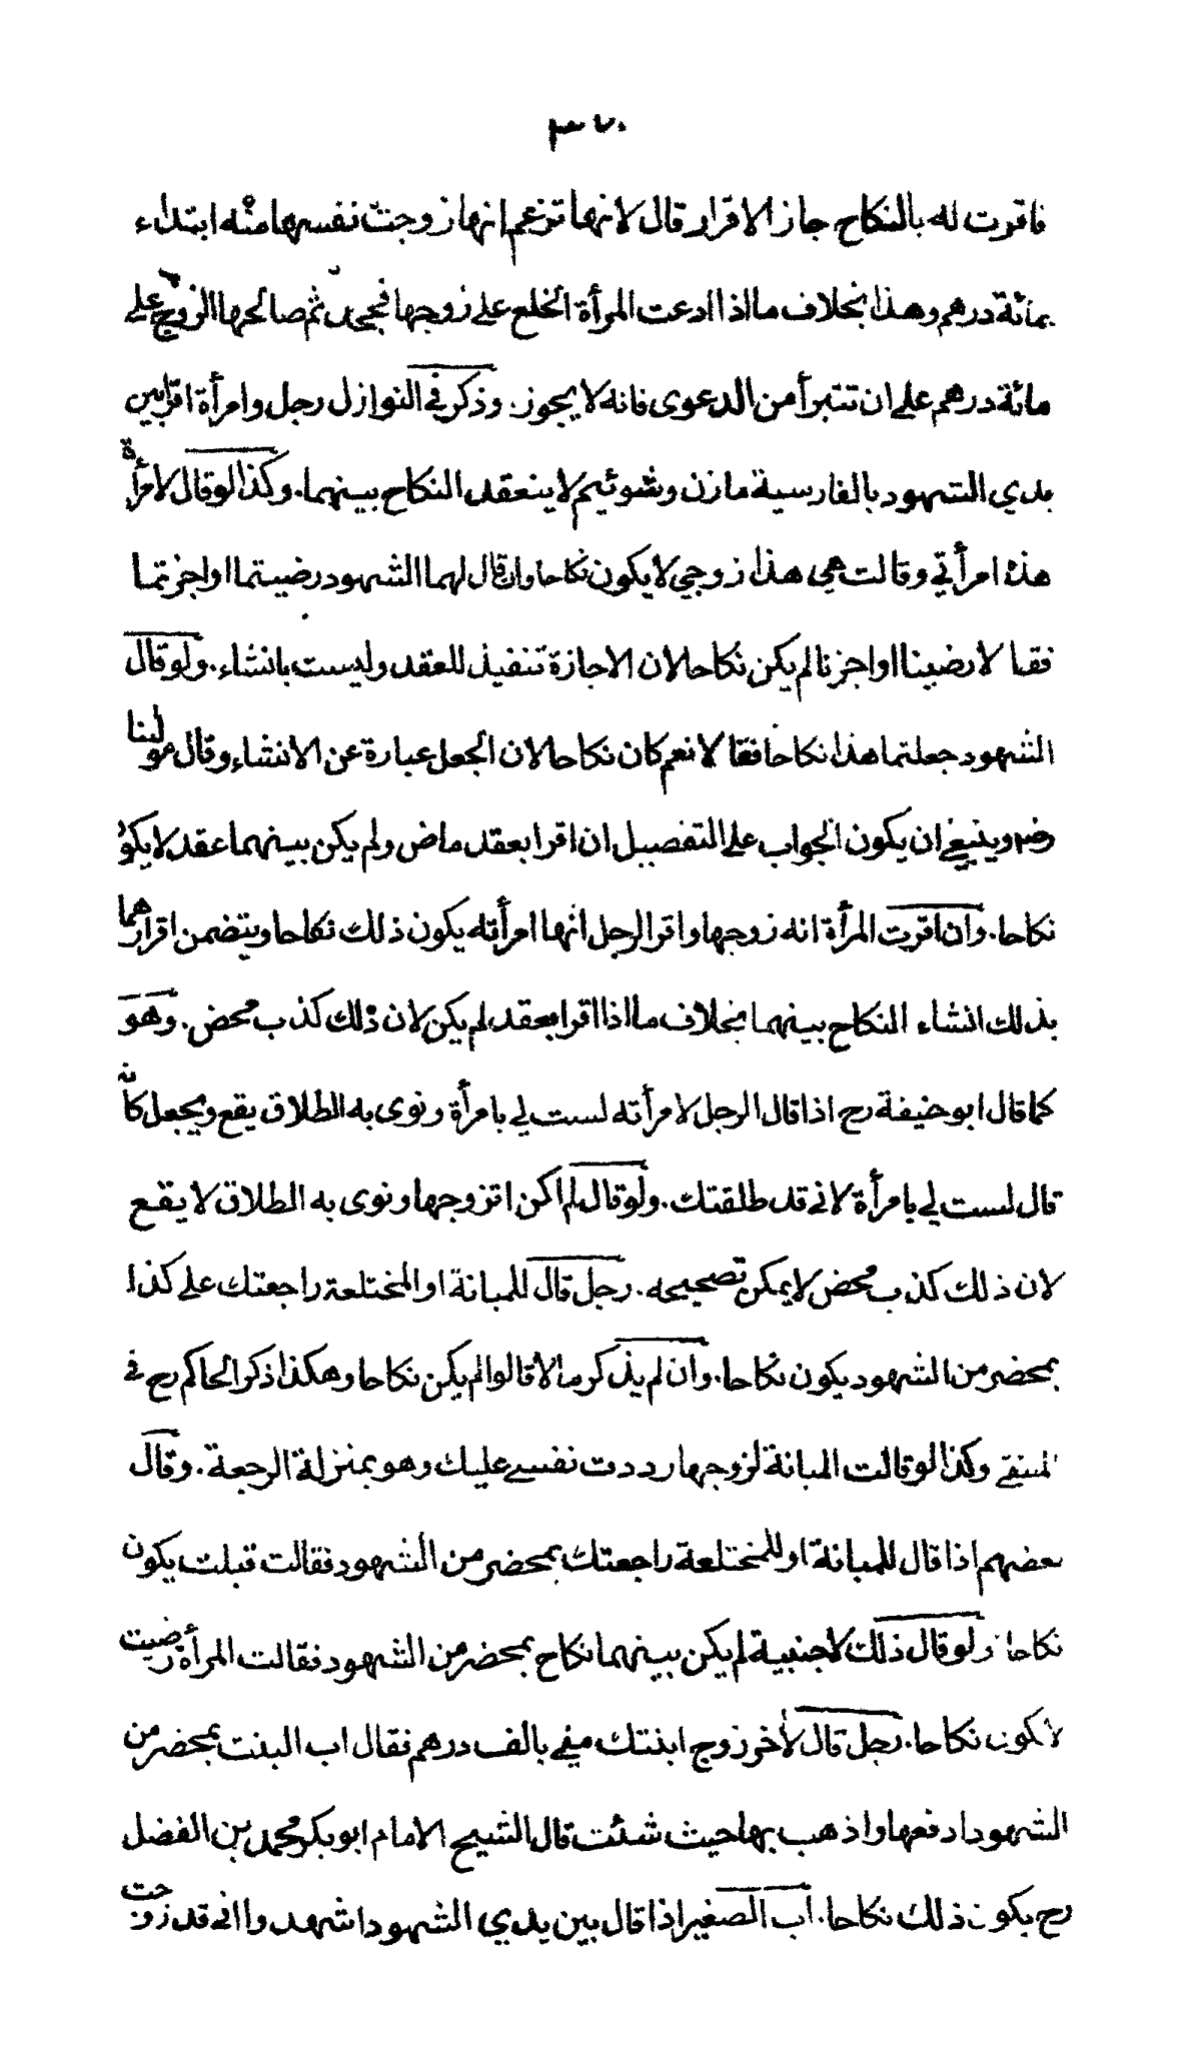 ٣٧٠
فاقرت له بالنكاح جاز الاقرار قال لانها تزعم انها زوجت نفسها منه ابتداء
بمائة درهم وهذا بخلاف ما اذا ادعت المرأة الخلع على زوجها فجحد ثم صالحها الزوج على
مائة درهم على ان تتبرأ من الدعوى فانه لا يجوز. وذكر في النوازل رجل وامرأة اقرا بين
يدي الشهود بالفارسية مازن وشوئيم لا ينعقد النكاح بينهما. وكذا لو قال لامرأة
هذه امرأتي وقالت هي هذا زوجي لا يكون نكاحا وان قال لهما الشهود رضيتما او اجزتما
فقالا رضينا او اجزنا لم يكن نكاحا لان الاجازة تنفيذ للعقد وليست بانشاء. ولو قال
الشهود جعلتما هذا نكاحا فقالا نعم كان نكاحا لان الجعل عبارة عن الانشاء وقال مولينا
رضه وينبغي ان يكون الجواب على التفصيل ان اقرا بعقد ماض ولم يكن بينهما عقد لا يكون
نكاحا. وان اقرت المرأة انه زوجها واقر الرجل انها امرأته يكون ذلك نكاحا ويتضمن اقرارهما
بذلك انشاء النكاح بينهما بخلاف ما اذا اقرا بعقد لم يكن لان ذلك كذب محض. وهو
كما قال ابو حنيفة رح اذا قال الرجل لامرأته لست لي بامرأة ونوى به الطلاق يقع ويجعل كانه
قال لست لي بامرأة لاني قد طلقتك. ولو قال لم اكن اتزوجها ونوى به الطلاق لا يقع
لان ذلك كذب محض لا يمكن تصحيحه. رجل قال للمبانة او المختلعة راجعتك على كذا
بمحضر من الشهود يكون نكاحا. وان لم يذكر مالا قالوا لم يكن نكاحا وهكذا ذكر الحاكم رح في
المنتقى وكذا لو قالت المبانة لزوجها رددت نفسي عليك وهو بمنزلة الرجعة. وقال
بعضهم اذا قال للمبانة او للمختلعة راجعتك بمحضر من الشهود فقالت قبلت يكون
نكاحا. ولو قال ذلك لاجنبية لم يكن بينهما نكاح بمحضر من الشهود فقالت المرأة رضيت
لا يكون نكاحا. رجل قال لأخر زوج ابنتك مني بالف درهم فقال اب البنت بمحضر من
الشهود ادفعها واذهب بها حيث شئت قال الشيخ الامام ابو بكر محمد بن الفضل
رح يكون ذلك نكاحا. اب الصغير اذا قال بين يدي الشهود اشهدوا اني قد زوجت